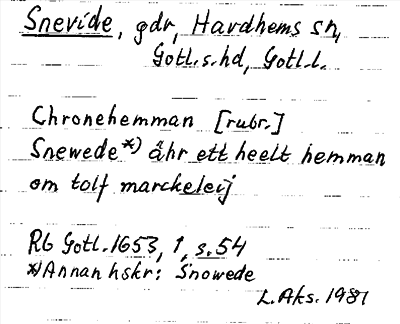 Snevide, gdr, Hardhems sn,
Gotl.s.hd, Gotl.l.
Chronehemman [rubr.]
Snewede*) ähr ett heelt hemman
om tolf marckeleij
Rb Gotl. 1653, 1, s. 54
*) Annan hskr: Snowede
L. Aks. 1981